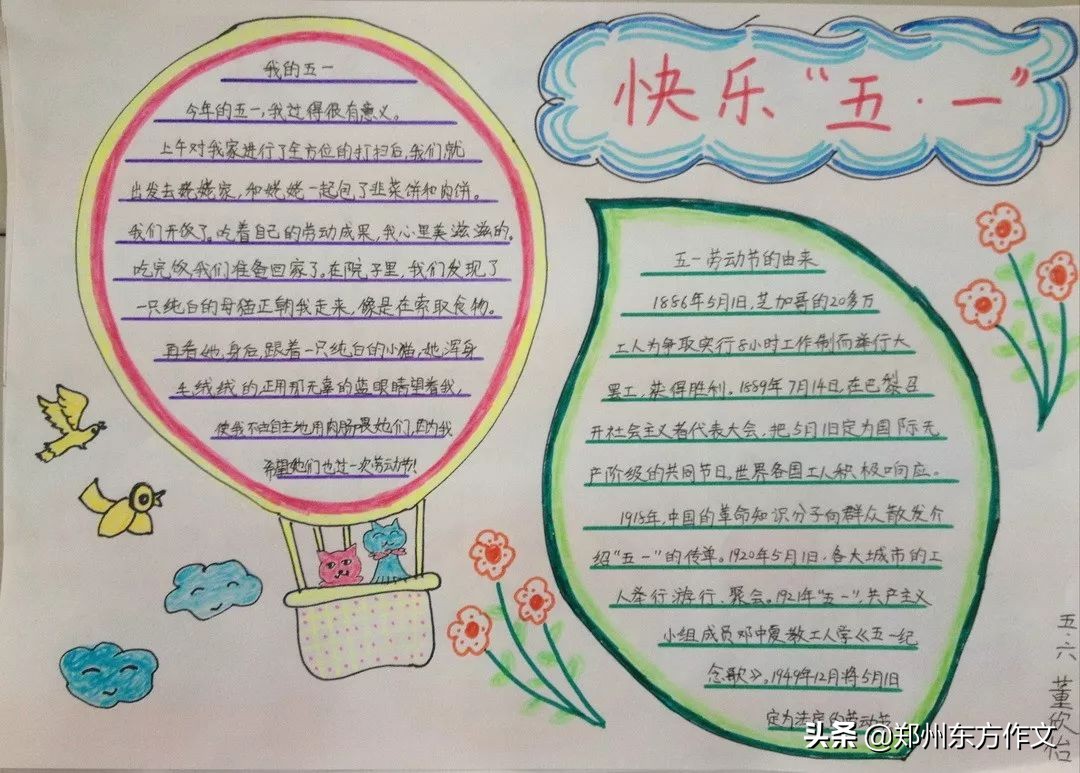 我的五一
今年的五一，我过得很有意义。
上午对我家进行了全方位的打扫后，我们就
出发去姥姥家，和姥姥一起包了韭菜饼和肉饼。
我们开饭了。吃着自己的劳动成果，我心里美滋滋的。
吃完饭，我们准备回家了。在院子里，我们发现了
一只纯白的母猫正朝我走来，像是在索取食物。
再看她，身后跟着一只纯白的小猫，她浑身
毛绒绒的正用那无辜的蓝眼睛望着我，
使我不由自主地用肉肠喂她们，因为我
希望她们也过一次劳动节！
快乐“五·一”
五一劳动节的由来
1886年5月1日，芝加哥的20多万
工人为争取实行8小时工作制而举行大
罢工，获得胜利。1889年7月14日，在巴黎召
开社会主义者代表大会，把5月1日定为国际无
产阶级的共同节日。世界各国工人积极响应。
1918年，中国的革命知识分子向群众散发介
绍“五一”的传单。1920年5月1日，各大城市的工
人举行游行、聚会。1921年“五一”，共产主义
小组成员邓中夏教工人学《五一纪
念歌》。1949年12月将5月1日
定为法定的劳动节
五·六 董欣怡
头条@郑州东方作文